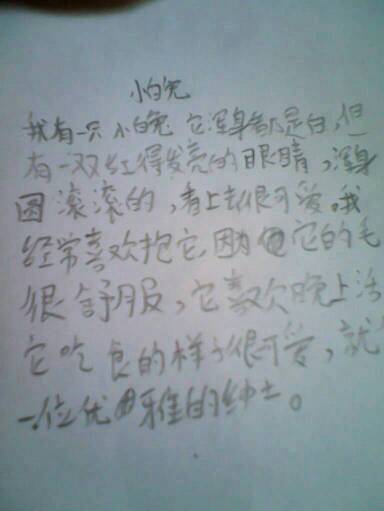 小白兔
我有一只小白兔它浑身都是白,但
有一双红得发亮的眼睛,浑身
圆滚滚的,看上去很可爱,我
经常喜欢抱它,因为它的毛
很舒服,它喜欢晚上活
它吃食的样子很可爱,就
一位优雅的绅士。